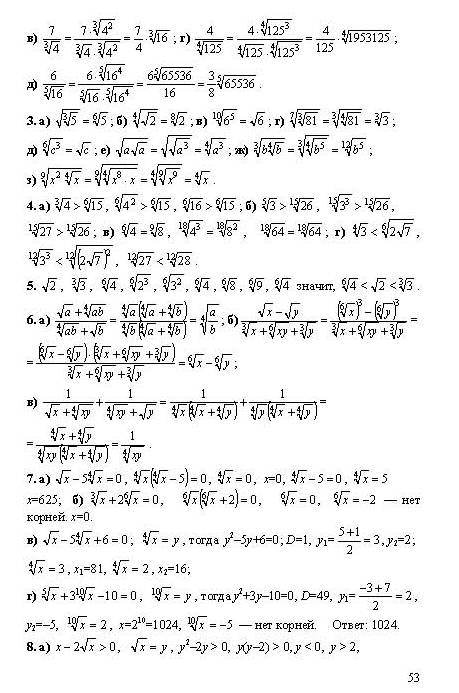 в) 7/∛4 = 7·∛4²/(∛4·∛4²) = 7/4 ∛16 ; г) 4/∜125 = 4·∜125³/(∜125·∜125³) = 4/125 · ∜1953125 ;
д) 6/⁵√16 = 6·⁵√16⁴/(⁵√16·⁵√16⁴) = 6⁵√65536/16 = 3/8 ⁵√65536 .
3. а) √(∛5) = ⁶√5 ; б) ∜(√2) = ⁸√2 ; в) ¹⁰√6⁵ = √6 ; г)
д) ⁶√c³ = √c ; е) √(a√a) = √(√a³) = ∜a³ ; ж) ∛(b∜b) = ∛(∜b⁵) = ¹²√b⁵ ;
з) ⁹√(x² ∜x) = ⁹√(∜(x⁸·x)) = ∜(⁹√x⁹) = ∜x .
4. а) ∛4 > ⁶√15 , ⁶√4² > ⁶√15 , ⁶√16 > ⁶√15 ; б) ⁵√3 > ¹⁵√26 , ¹⁵√3³ > ¹⁵√26 ,
¹⁵√27 > ¹⁵√26 ; в) ⁶√4 = ⁹√8 , ¹⁸√4³ = ¹⁸√8² , ¹⁸√64 = ¹⁸√64 ; г) ∜3 < ⁶√(2√7) ,
¹²√3³ < ¹²√((2√7)²) , ¹²√27 < ¹²√28 .
5. √2 , ∛3 , ⁶√4 , ⁶√2³ , ⁶√3² , ⁶√4 , ⁶√8 , ⁶√9 , ⁶√4 значит, ⁶√4 < √2 < ∛3 .
6. а) (√a + ∜(ab))/(∜(ab) + √b) = ∜a(∜a + ∜b)/(∜b(∜a + ∜b)) = ∜(a/b) ; б) (√x − √y)/(∛x + ⁶√(xy) + ∛y) = ((⁶√x)³ − (⁶√y)³)/(∛x + ⁶√(xy) + ∛y) =
= (⁶√x − ⁶√y)·(∛x + ⁶√(xy) + ∛y)/(∛x + ⁶√(xy) + ∛y) = ⁶√x − ⁶√y ;
в) 1/(√x + ∜(xy)) + 1/(∜(xy) + √y) = 1/(∜x(∜x + ∜y)) + 1/(∜y(∜x + ∜y)) =
= (∜x + ∜y)/(∜(xy)(∜x + ∜y)) = 1/∜(xy) .
7. а) √x − 5∜x = 0 , ∜x(∜x − 5) = 0 , ∜x = 0 , x=0, ∜x − 5 = 0 , ∜x = 5
x=625; б) ∛x + 2⁶√x = 0 , ⁶√x(⁶√x + 2) = 0 , ⁶√x = 0 , ⁶√x = −2 — нет
корней. x=0.
в) √x − 5∜x + 6 = 0 ; ∜x = y , тогда y²–5y+6=0; D=1, y₁= (5+1)/2 = 3 , y₂=2;
∜x = 3 , x₁=81, ∜x = 2 , x₂=16;
г) ⁵√x + 3¹⁰√x − 10 = 0 , ¹⁰√x = y , тогда y²+3y–10=0, D=49, y₁= (−3+7)/2 = 2 ,
y₂=–5, ¹⁰√x = 2 , x=2¹⁰=1024, ¹⁰√x = −5 — нет корней. Ответ: 1024.
8. а) x − 2√x > 0 , √x = y , y²–2y > 0, y(y–2) > 0, y < 0, y > 2,
53